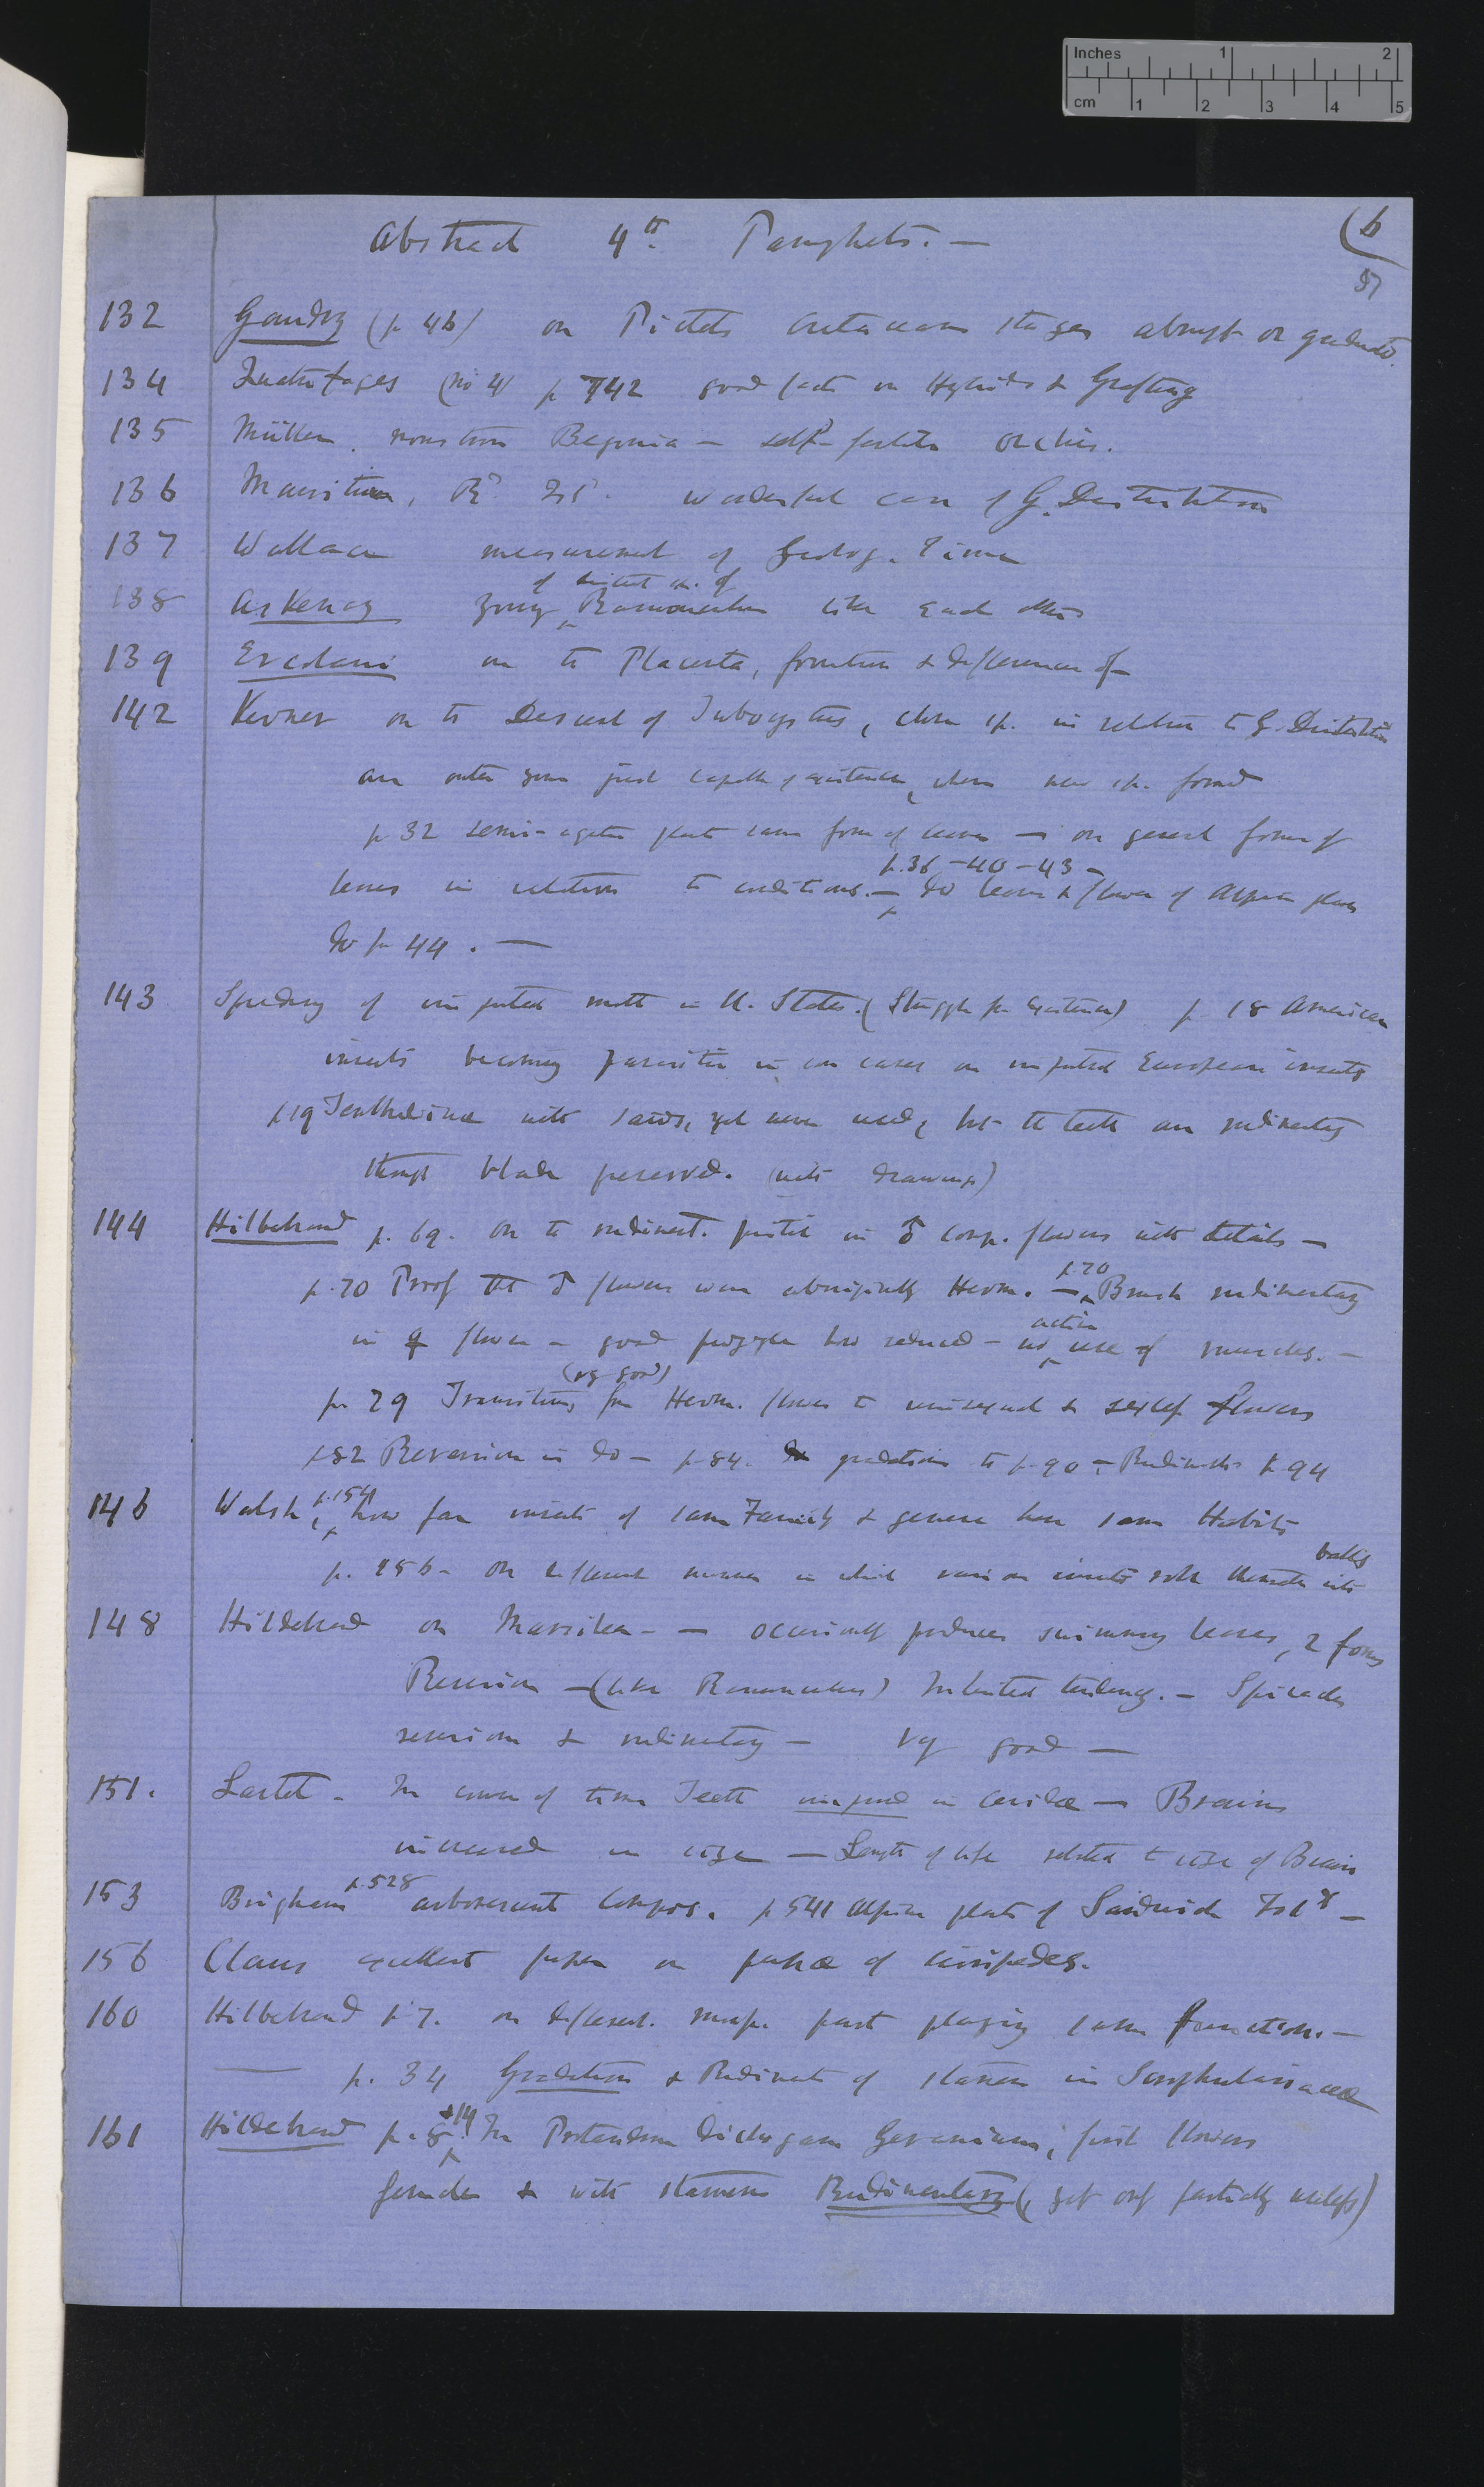 Inches 1 2
cm 1 2 3 4 5
Abstract 4th Pamphlets. — (6
57
132 Gaudry (p 46) on Pictets Cretaceous stages abrupt or graduated.
134 Quatrefages (no 4) p 742 good facts on Hybrids & Grafting
135 Müller monstrous Begonia — self-fertile orchis.
136 Mauritius, Rd Isd. wonderful case of G. Distribution
137 Wallace measurement of Geolog. Time
of distinct sp. of
138 Askenasy young Ranunculus like each other
139 Ercolani on the Placenta, function & difference of —
142 Kerner on the Descent of Tubocytisus, close sp. in relation to G. Distribution
are outer zone just capable of existence, where new sp. formed
p 32 semi-aquatic plants same form of leaves — on general forms of
p. 36 – 40 – 43 –
leaves in relation to conditions. — do leaves & flower of Alpine plants
do p 44. —
143 Spreading of imported moth in U. States. (Struggle for Existence) p 18 American
insects becoming parasitic in some cases on imported European insects
p 19 Tenthredinae with saws, yet never used, but the teeth are rudimentary
though blade preserved. (with drawings)
144 Hildebrand p. 69. on the rudiment. pistil in ♂ comp. flowers with details —
p. 70
p. 70 Proof that ♂ flowers were aboriginally Herm. — Brush rudimentary
active
in ♀ flower — good passage how reduced — no use of muscles. —
(vy good)
p. 79 Transitions from Herm. flowers to unisexual & sexless flowers
p 82 Reversion in do — p 84. gradations to p. 90 — Rudiments p 94
p. 154
146 Walsh, how far insects of same Family & genera have same Habits
balls
p. 156 — on different manner in which various insects roll themselves into
148 Hildebrand on Marsilea — — occasionally produces swimming leaves, 2 forms
Reversion — (like Ranunculus) Inherited tendency. — Spirades
reversion & rudimentary — vy good —
151. Lartet — In course of time Teeth in Cervidae — Brains
increased in size — Length of life related to size of Brain
p. 528
153 Bingham arborescent Compos. p 541 Alpine plants of Sandwich Isds —
156 Claus excellent paper on pupae of cirripedes.
160 Hildebrand p 7. on different. morph. part playing same function. —
— p. 34 Gradation & Rudiments of stamens in Scrophulariaceae
& 14
161 Hildebrand p. 8. In Protandrous Dichogam Geraniums, first flowers
females & with stamens Rudimentary (, yet only partially useless)